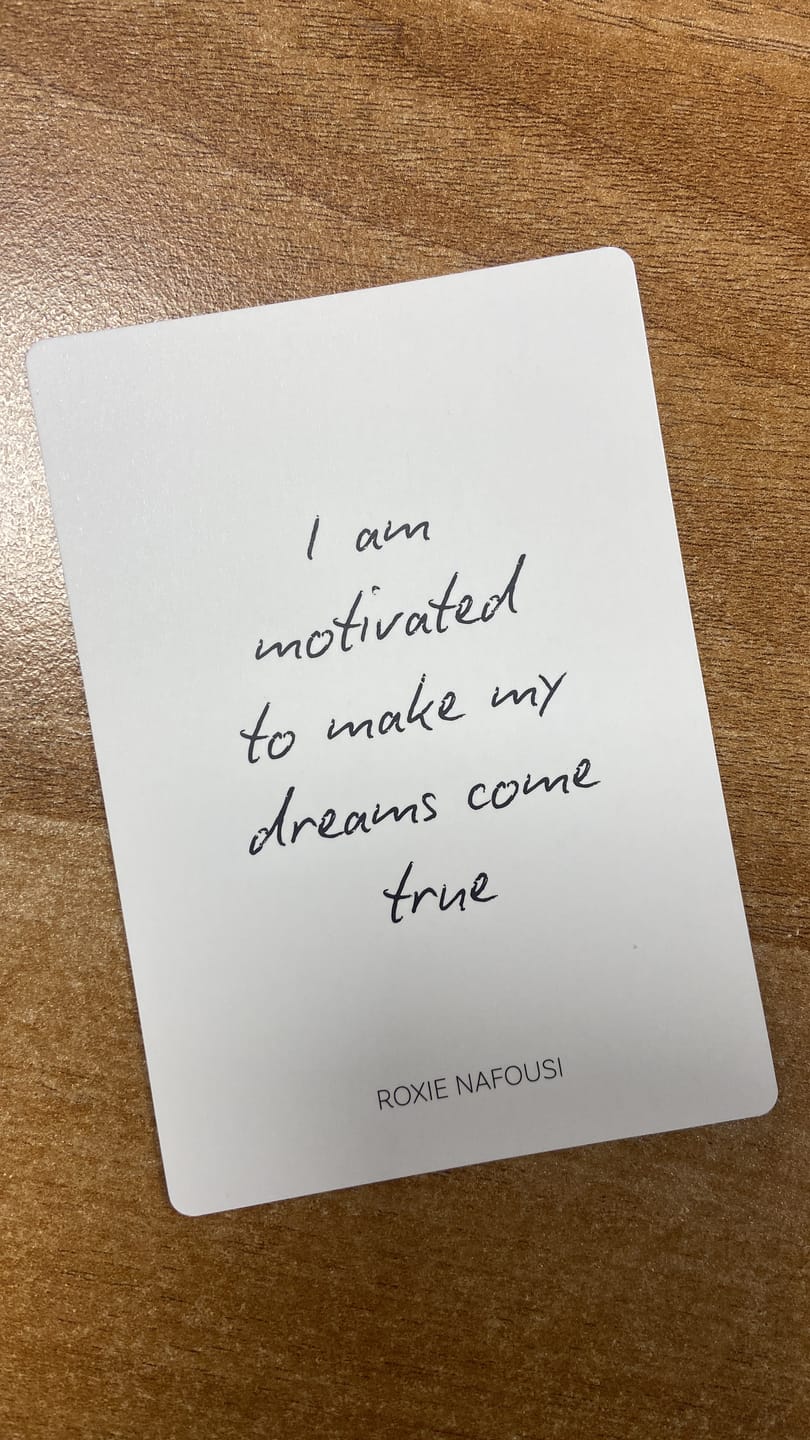 I am
motivated
to make my
dreams come
true
ROXIE NAFOUSI